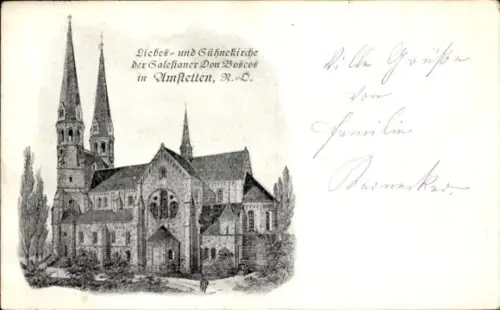 Liebes- und Sühnekirche
der Salesianer Don Boscos
in Amstetten, N.-Ö.
Viele Grüße
von
Familie